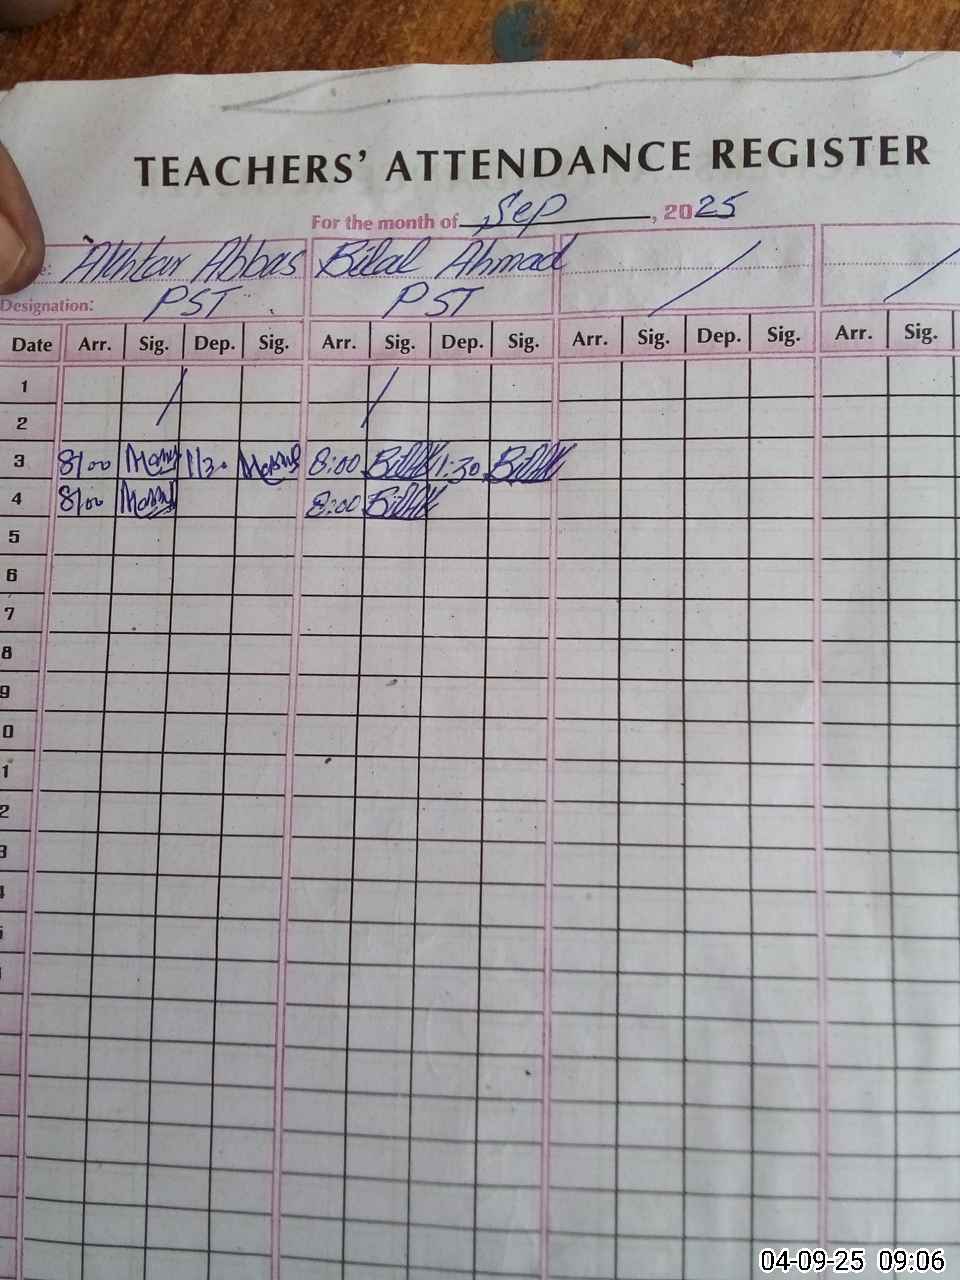 TEACHERS' ATTENDANCE REGISTER
For the month of Sep, 2025
e: Akhtar Abbas Bilal Ahmad
Designation: PST PST
Date Arr. Sig. Dep. Sig. Arr. Sig. Dep. Sig. Arr. Sig. Dep. Sig. Arr. Sig.
1
2
3 8/00 1/30 8:00 Bilal 1:30 Bilal
4 8/00 8:00 Bilal
5
6
7
8
9
0
1
2
3
4
04-09-25 09:06